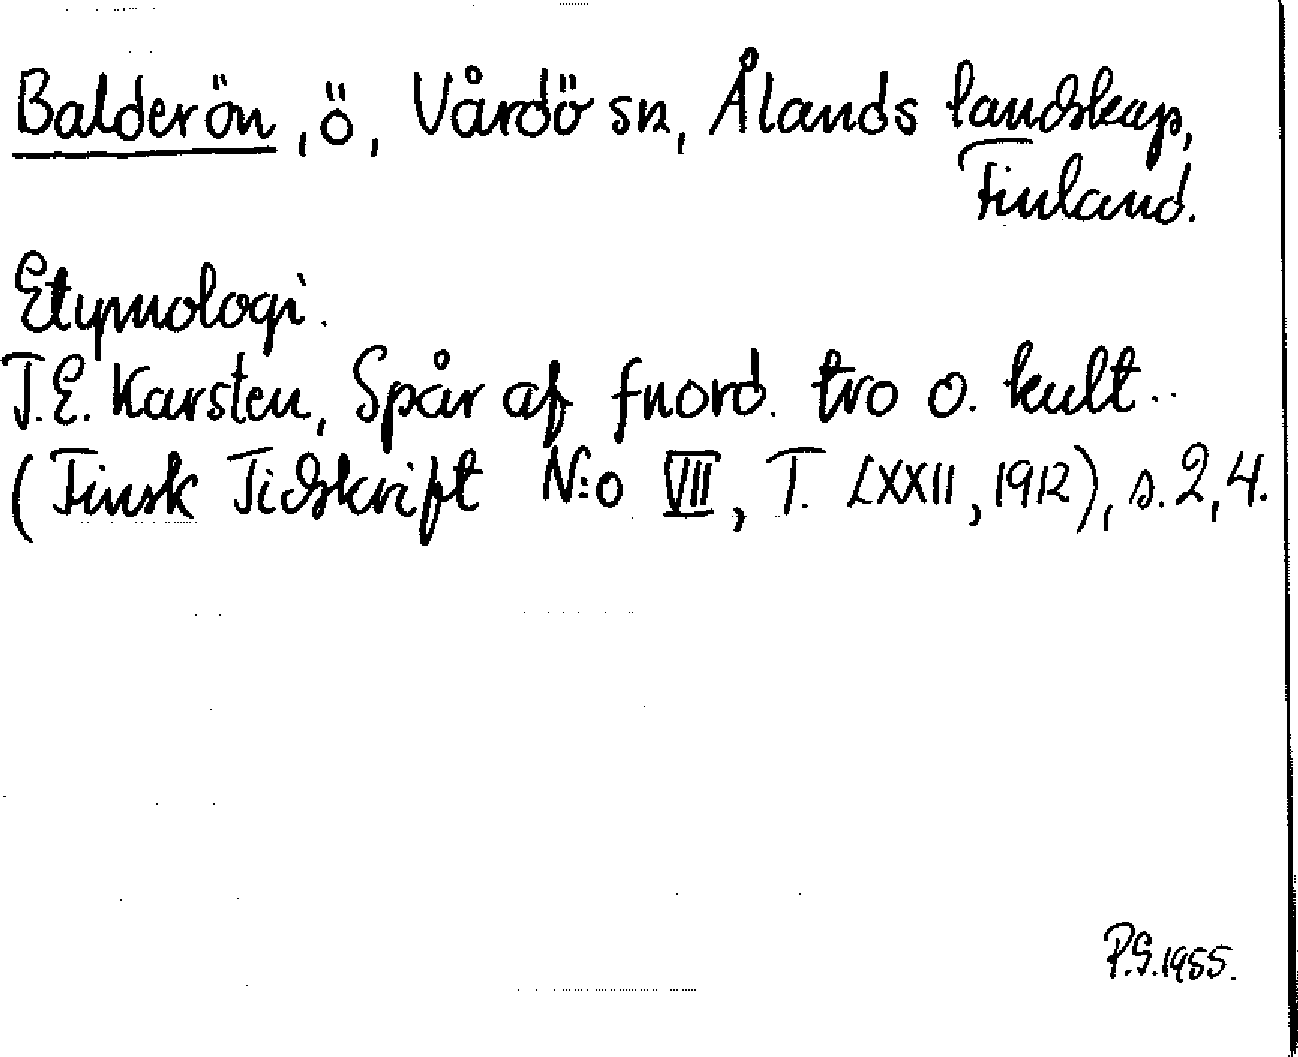 Balderön, ö, Vårdö sn, Ålands landskap,
Finland.
Etymologi.
T.E. Karsten, Spår af fnord. tro o. kult..
(Finsk Tidskrift N:o VIII, T. LXXII, 1912), s. 2, 4.
P.S. 1955.